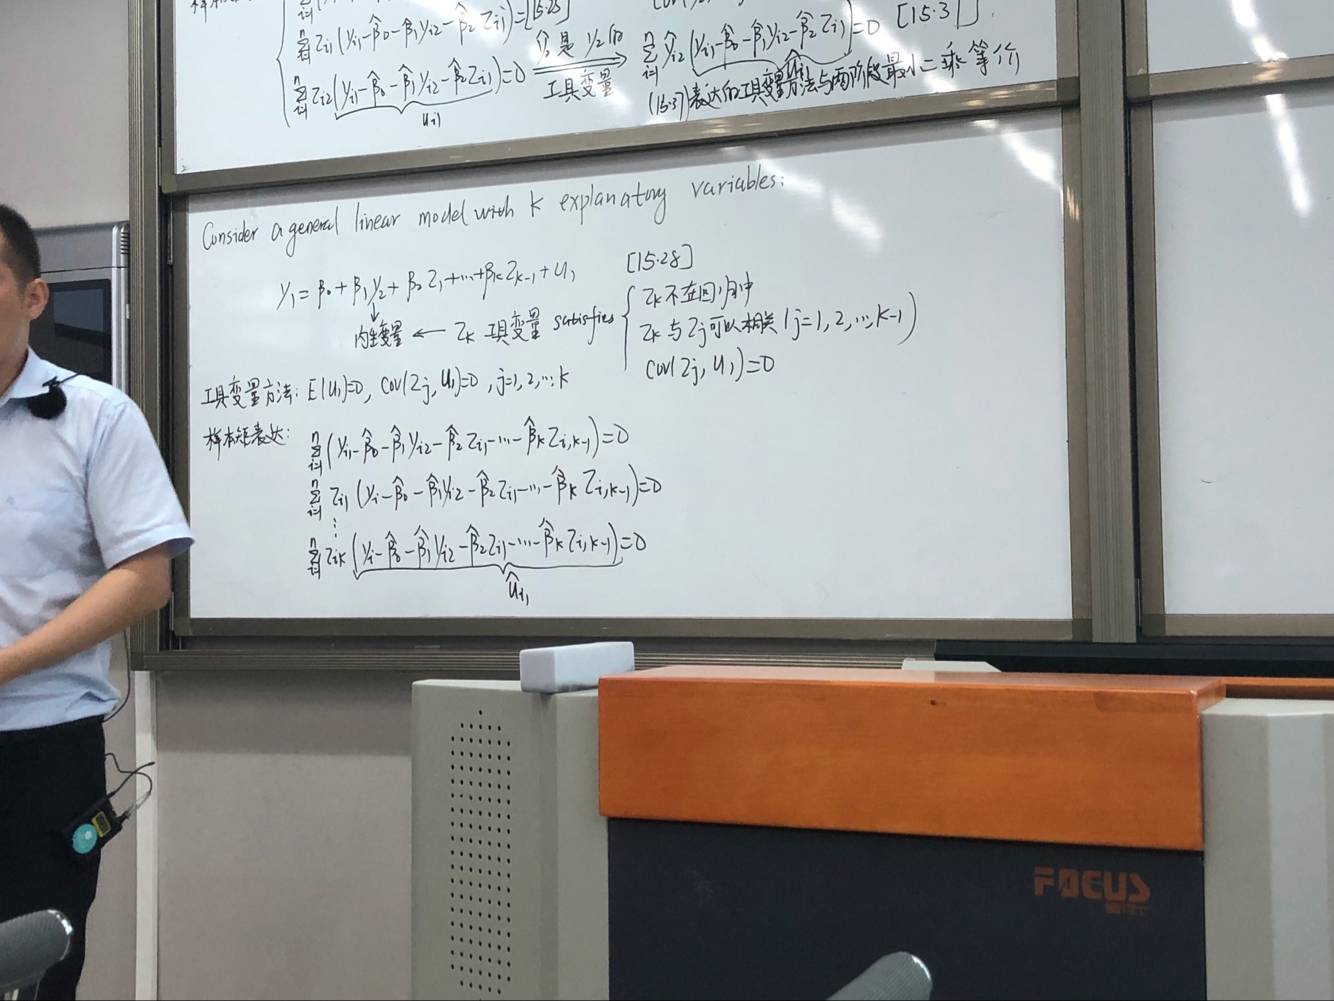 ∑ᵢ₌₁ⁿ Zᵢ₁(yᵢ₁-β̂₀-β̂₁yᵢ₂-β̂₂Zᵢ₁)=0 [15.25]
∑ᵢ₌₁ⁿ Zᵢ₂(yᵢ₁-β̂₀-β̂₁yᵢ₂-β̂₂Zᵢ₁)=0
ûᵢ₁
ŷ₂是y₂的
工具变量
∑ᵢ₌₁ⁿ ŷᵢ₂(yᵢ₁-β̂₀-β̂₁yᵢ₂-β̂₂Zᵢ₁)=0 [15.37]
ûᵢ₁
(15.37)表达的工具变量方法与两阶段最小二乘等价
Consider a general linear model with k explanatory variables:
y₁=β₀+β₁y₂+β₂Z₁+...+βₖZₖ₋₁+u₁ [15.28]
内生变量 ← Zₖ 工具变量 satisfies
Zₖ不在回归中
Zₖ与Zⱼ可以相关(j=1,2,...,k-1)
cov(Zⱼ,u₁)=0
工具变量方法: E(u₁)=0, cov(Zⱼ,u₁)=0, j=1,2,...,k
样本矩表达:
∑ᵢ₌₁ⁿ(yᵢ₁-β̂₀-β̂₁yᵢ₂-β̂₂Zᵢ₁-...-β̂ₖZᵢ,ₖ₋₁)=0
∑ᵢ₌₁ⁿ Zᵢ₁(yᵢ-β̂₀-β̂₁yᵢ₂-β̂₂Zᵢ₁-...-β̂ₖZᵢ,ₖ₋₁)=0
⋮
∑ᵢ₌₁ⁿ Zᵢₖ(yᵢ-β̂₀-β̂₁yᵢ₂-β̂₂Zᵢ₁-...-β̂ₖZᵢ,ₖ₋₁)=0
ûᵢ₁
FOCUS